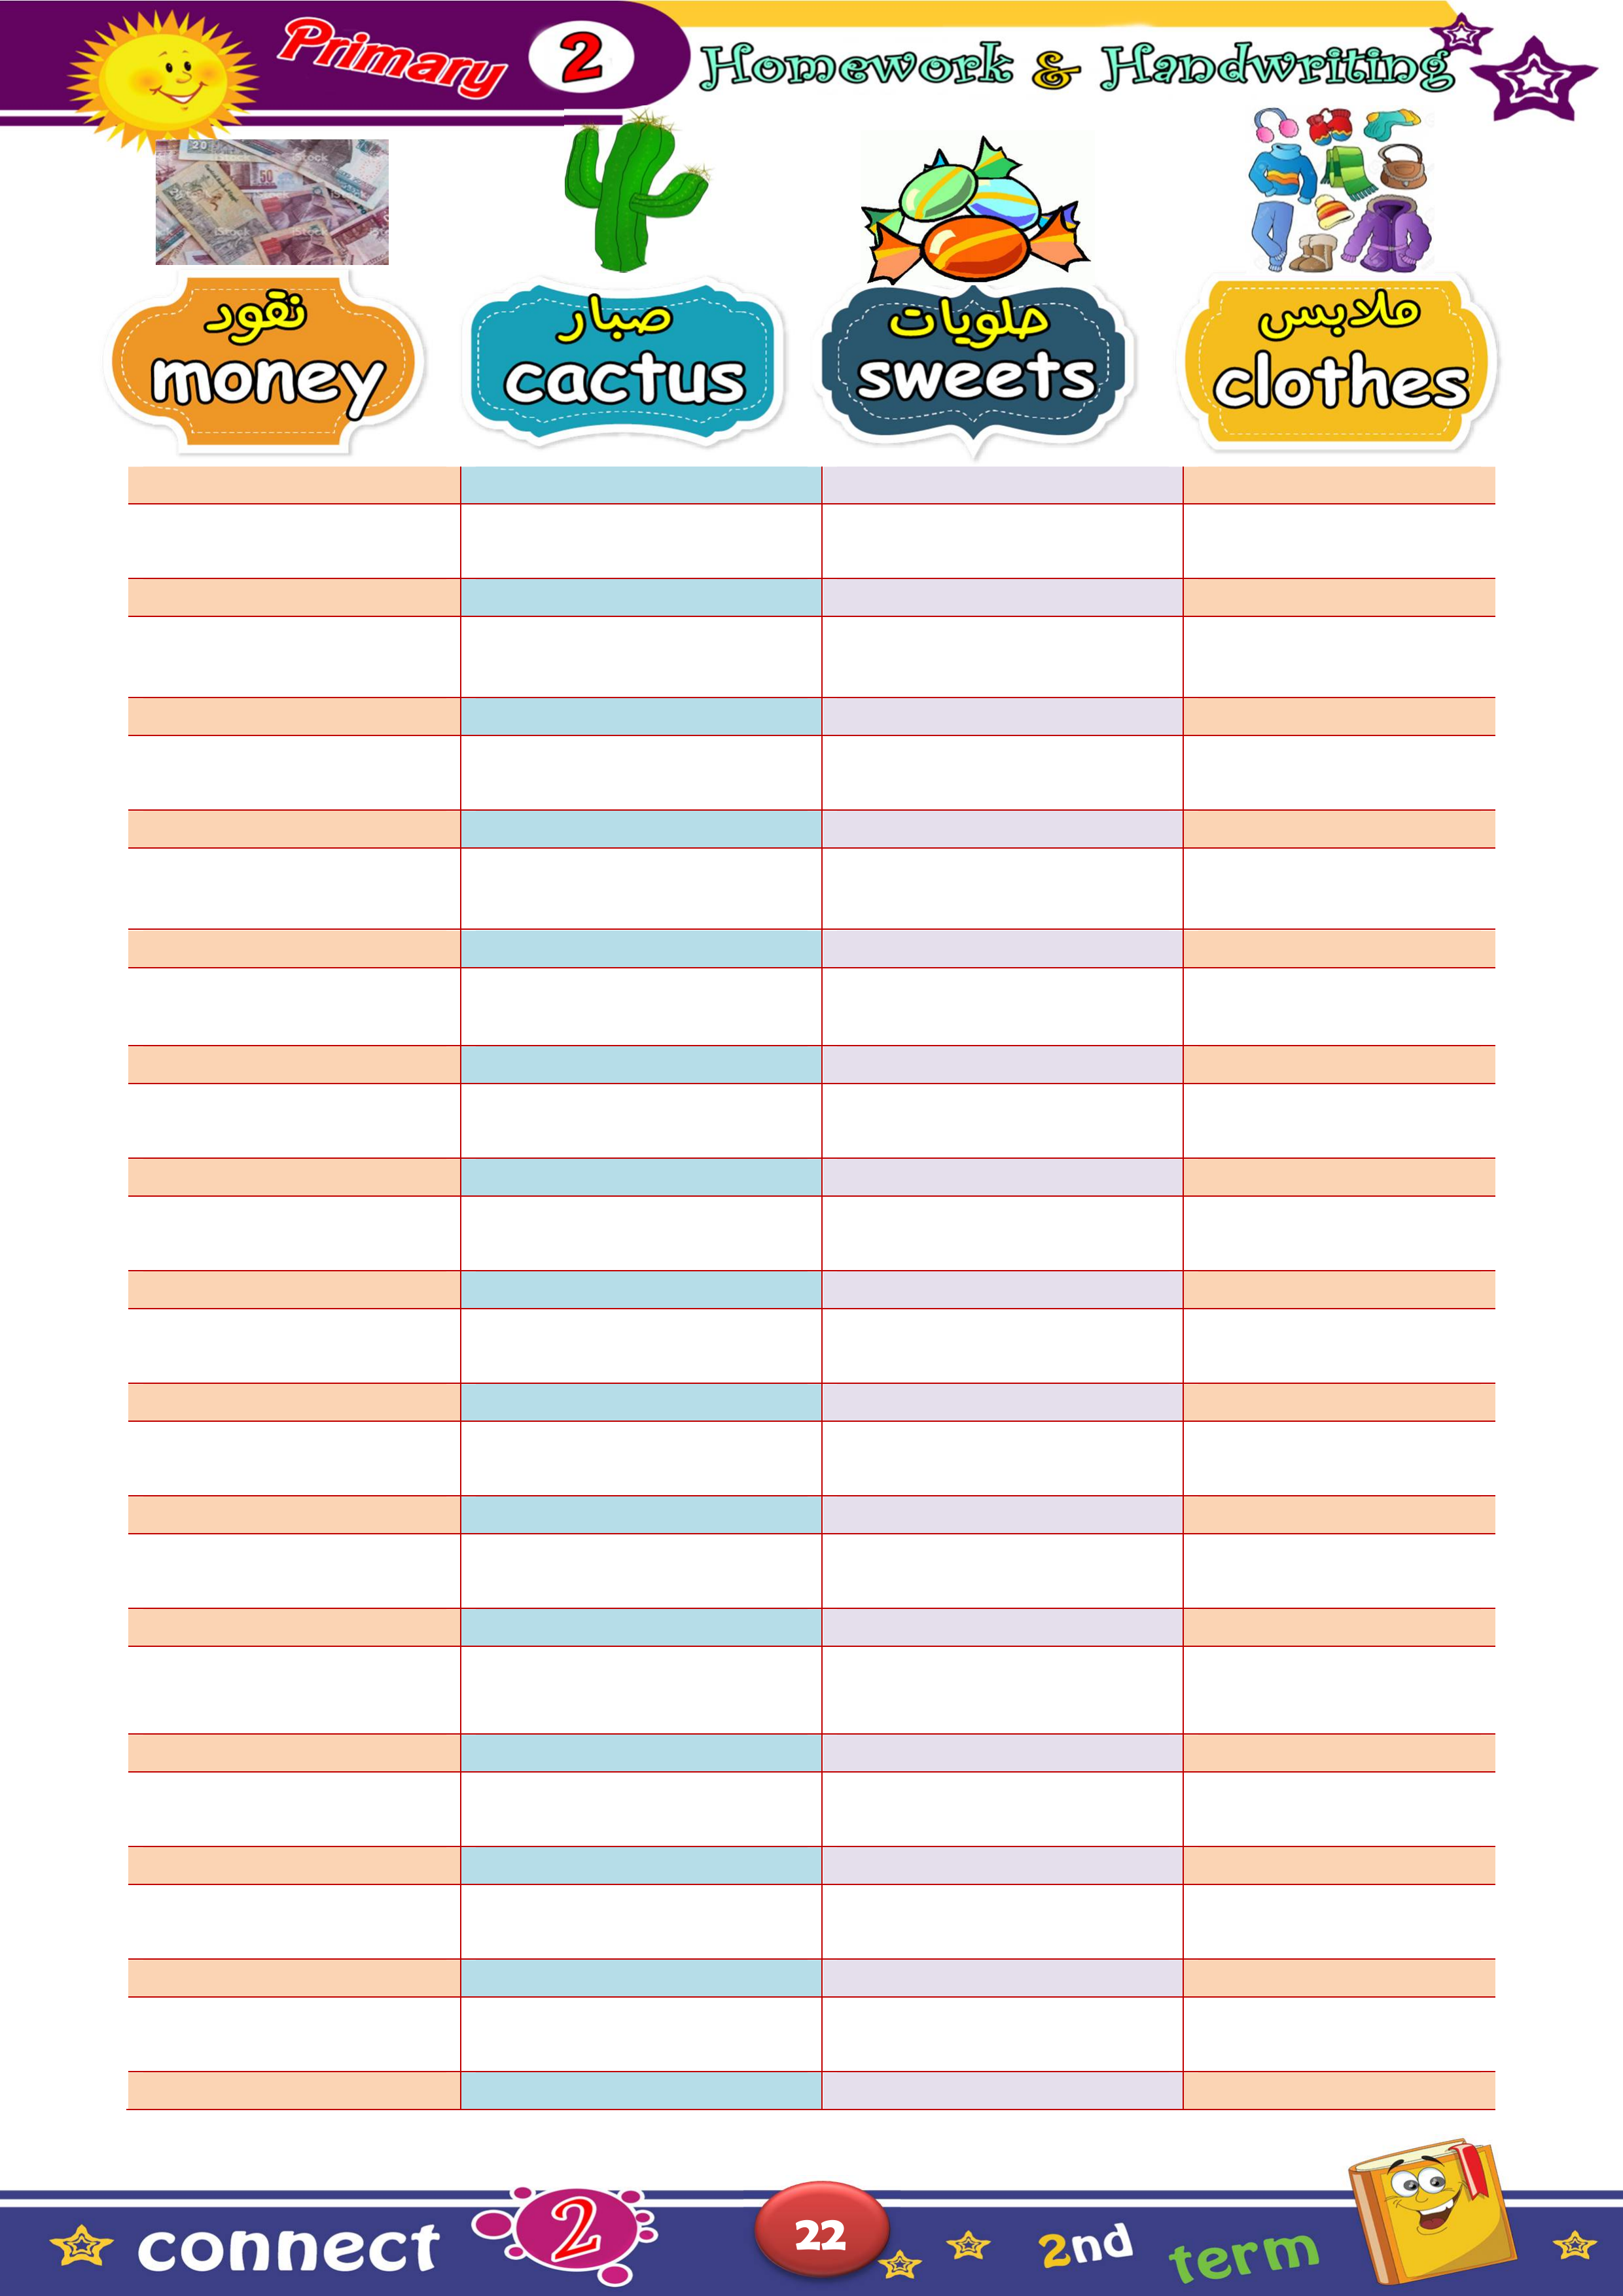 Primary 2 Homework & Handwriting
نقود
money
صبار
cactus
حلويات
sweets
ملابس
clothes
connect 2 22 2nd term